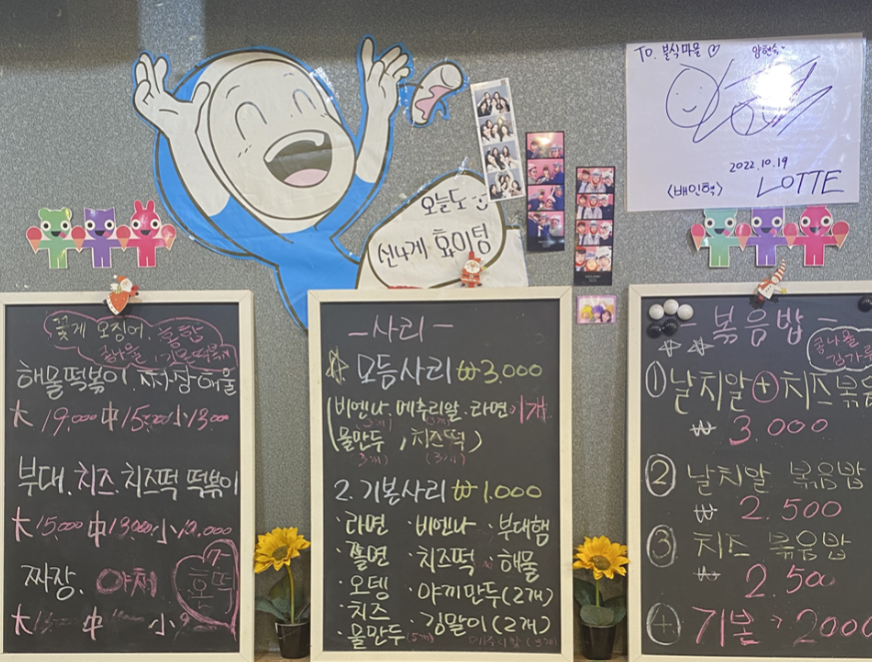 TO. 분식마을
2022.10.19
<배인혁>
LOTTE
오늘도
신나게 효이팅
꽃게 오징어. 홍합
해물떡볶이. 짜장해물
大 19,000 中 15,000 小 13,000
부대. 치즈. 치즈떡 떡볶이
大 15,000 中 13,000 小
짜장. 야채
大 中 小
- 사리 -
모듬사리 ₩3,000
(비엔나. 메추리알. 라면 1개
물만두, 치즈떡)
2. 기본사리 ₩1.000
· 라면 · 비엔나 · 부대햄
· 쫄면 · 치즈떡 · 해물
· 오뎅 · 야끼만두(2개)
· 치즈 · 김말이(2개)
· 물만두(5개)
- 볶음밥 -
콩나물
김가루
① 날치알 + 치즈볶음
₩ 3.000
② 날치알 볶음밥
₩ 2.500
③ 치즈 볶음밥
₩ 2.50
④ 기본 > 2000